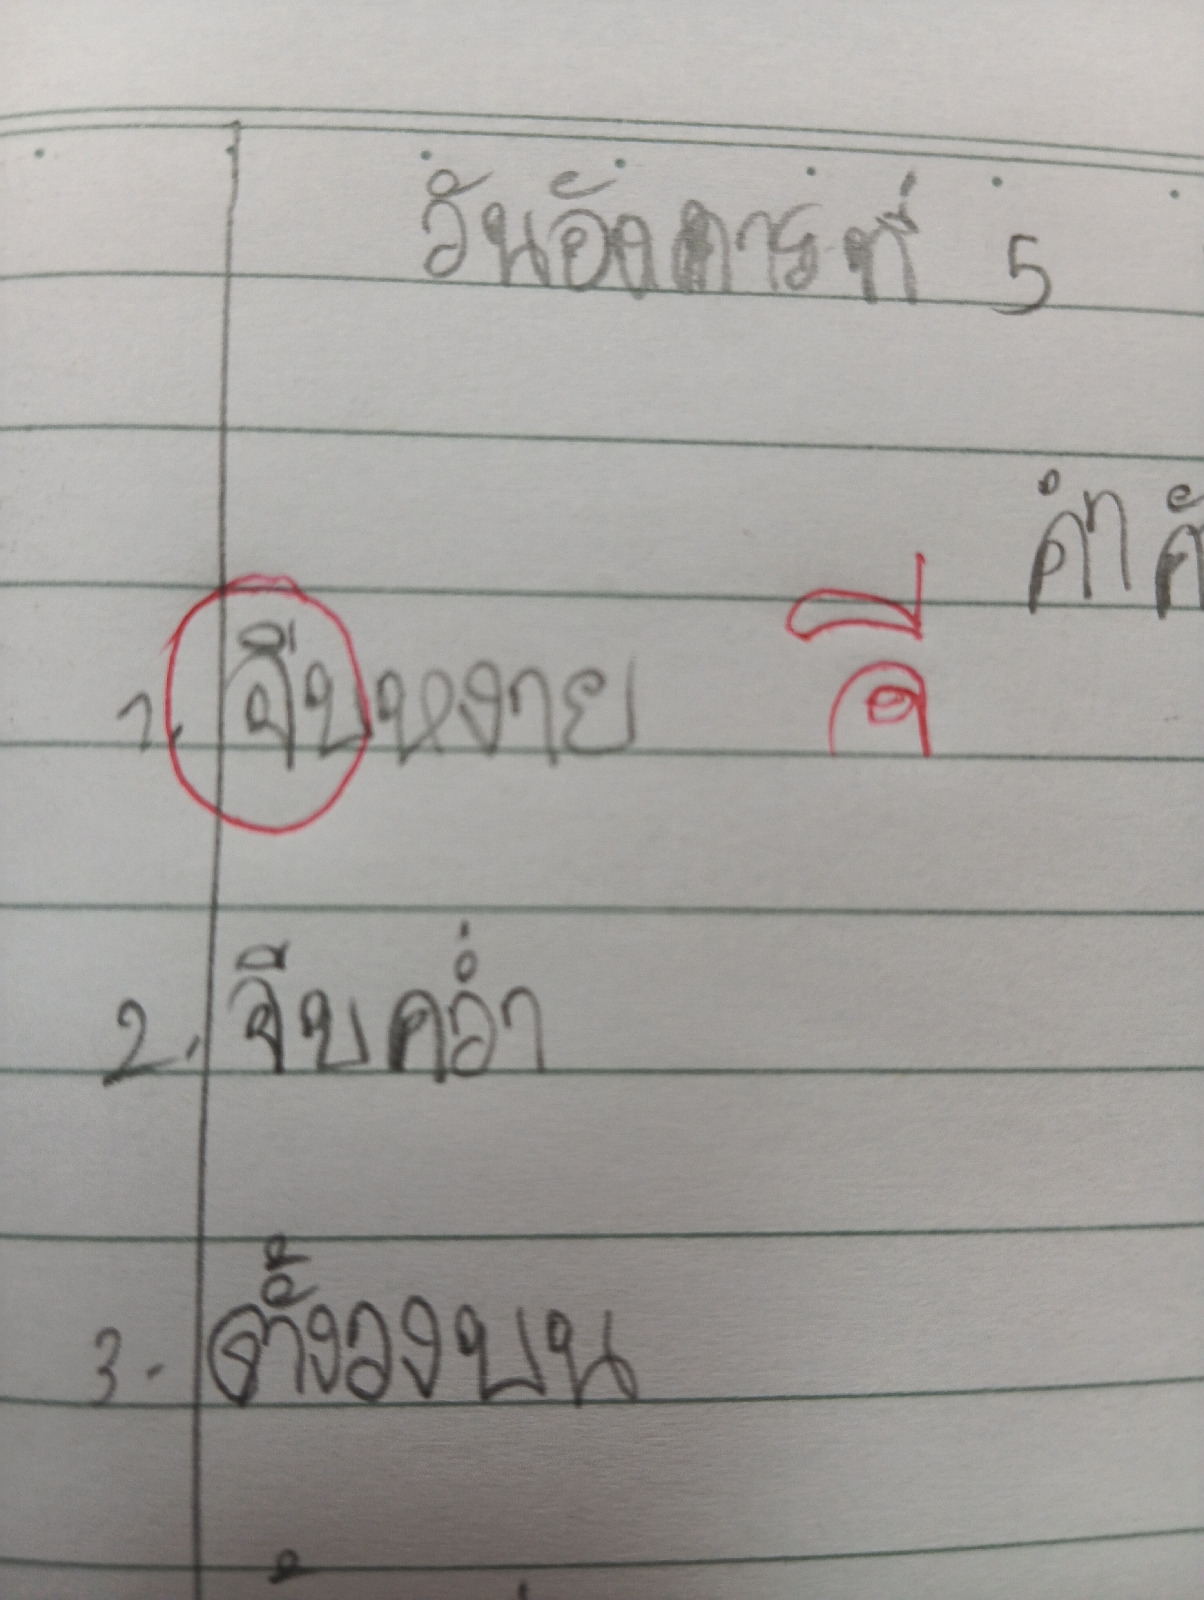 วันอังคารที่ 5
คำศั
1. จีบหงาย
สี
2. จีบคว่ำ
3. ตั้งวงบน